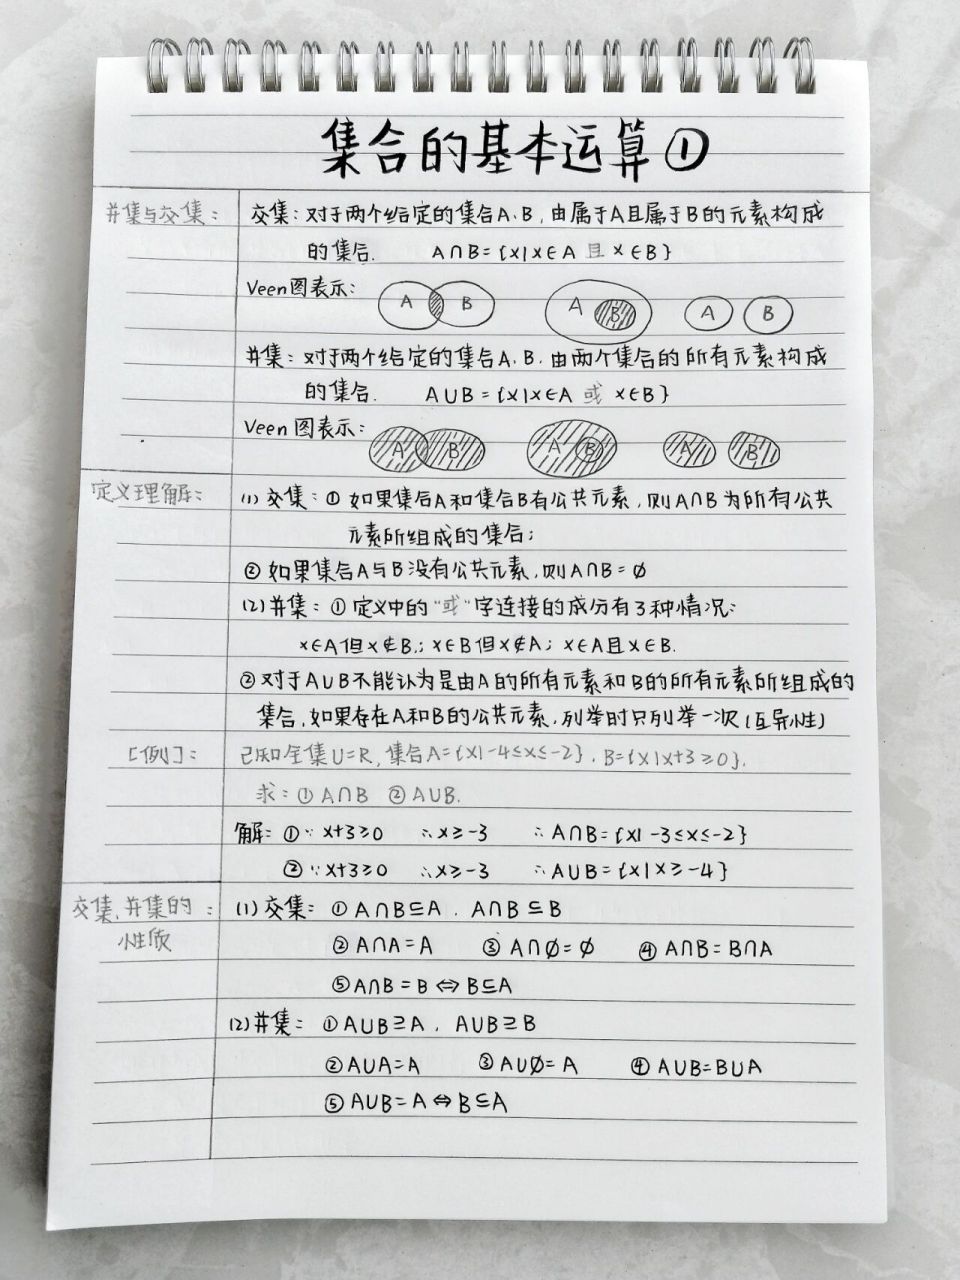 集合的基本运算①
并集与交集：
交集：对于两个给定的集合A、B，由属于A且属于B的元素构成
的集合. A∩B={x|x∈A 且 x∈B}
Veen图表示：
A B A B A B
并集：对于两个给定的集合A、B.由两个集合的所有元素构成
的集合. A∪B={x|x∈A 或 x∈B}
Veen图表示：
A B A B A B
定义理解：
(1)交集：①如果集合A和集合B有公共元素，则A∩B为所有公共
元素所组成的集合；
②如果集合A与B没有公共元素，则A∩B=∅
(2)并集：①定义中的"或"字连接的成分有3种情况：
x∈A但x∉B.；x∈B但x∉A；x∈A且x∈B.
②对于A∪B不能认为是由A的所有元素和B的所有元素所组成的
集合，如果存在A和B的公共元素，列举时只列举一次(互异性)
[例]：
已知全集U=R，集合A={x|-4≤x≤-2}，B={x|x+3≥0}.
求：①A∩B ②A∪B.
解：①∵x+3≥0 ∴x≥-3 ∴A∩B={x|-3≤x≤-2}
②∵x+3≥0 ∴x≥-3 ∴A∪B={x|x≥-4}
交集、并集的：
性质
(1)交集：①A∩B⊆A，A∩B⊆B
②A∩A=A ③A∩∅=∅ ④A∩B=B∩A
⑤A∩B=B⇔B⊆A
(2)并集：①A∪B⊇A，A∪B⊇B
②A∪A=A ③A∪∅=A ④A∪B=B∪A
⑤A∪B=A⇔B⊆A